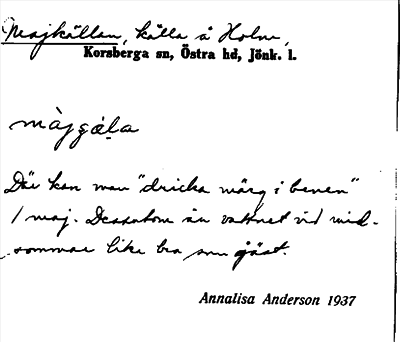 Majkällan, källa å Holm,
Korsberga sn, Östra hd, Jönk. l.
màjçạ́la
Där kan man "dricka märg i benen"
1 maj. Dessutom är vattnet vid mid-
sommar lika bra som jäst.
Annalisa Anderson 1937